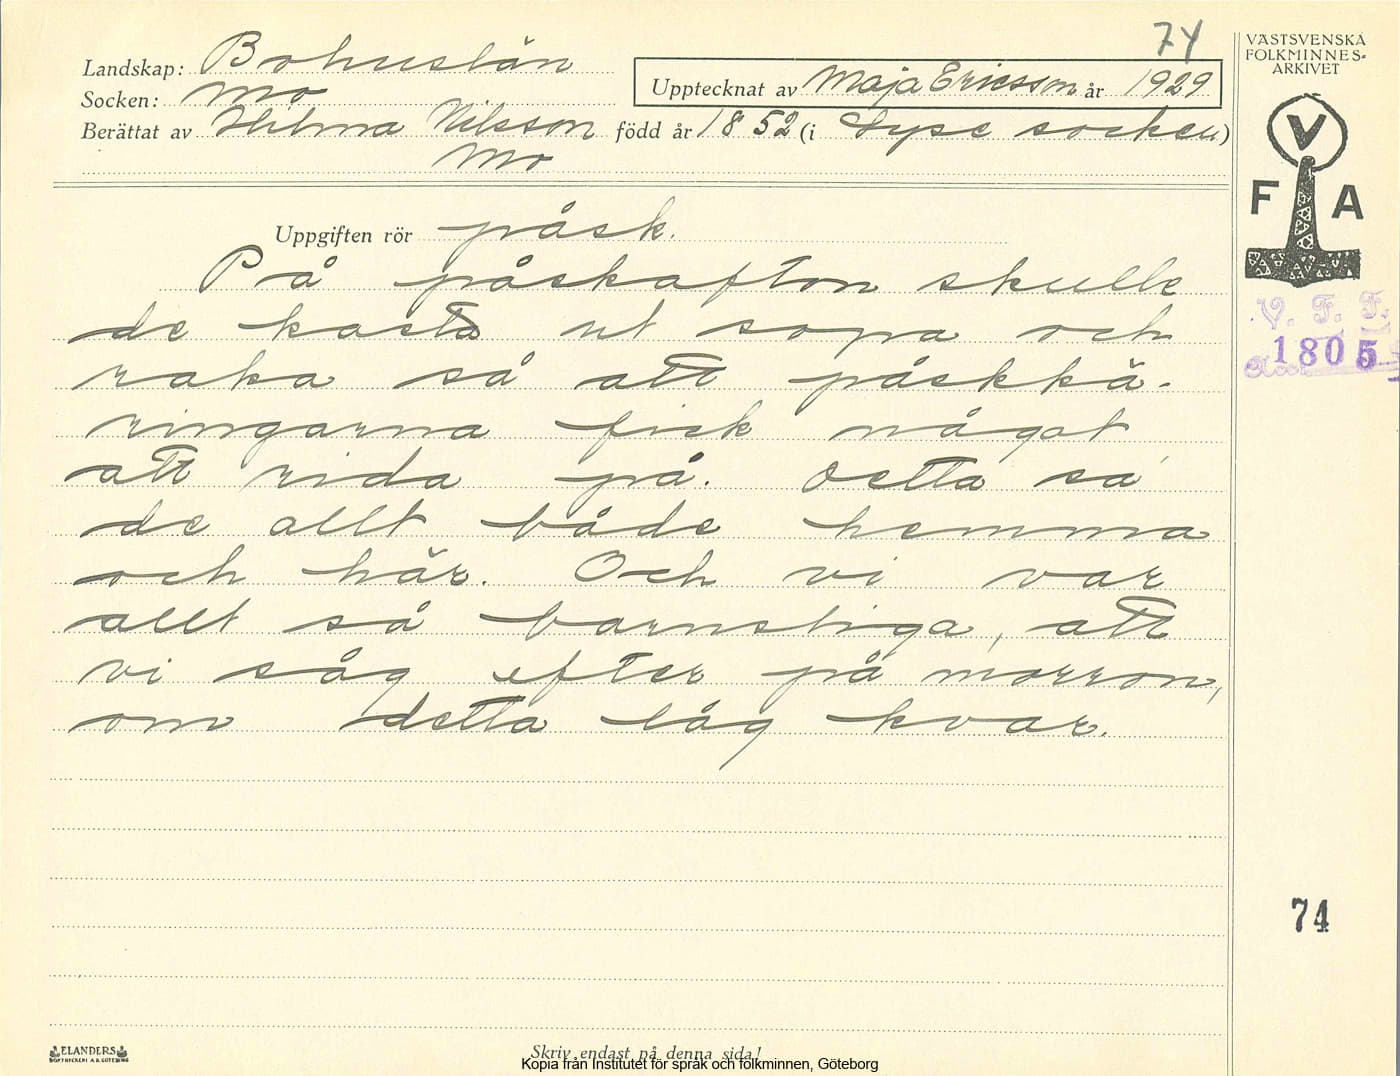 74
VÄSTSVENSKA
FOLKMINNES-
ARKIVET
Landskap: Bohuslän
Upptecknat av Maja Ericsson år 1929
Socken: Mo
Berättat av Hilma Nilsson född år 1852 (i Lyse socken)
Mo
V
F A
Uppgiften rör påsk.
På påskafton skulle
de kasta ut sopa och
raka så att påskkä-
ringarna fick något
att rida på. Detta sa
de allt både hemma
och här. Och vi var
allt så barnsliga, att
vi såg efter på morron,
om detta låg kvar.
V. F. F.
1805
74
ELANDERS
BOKTRYCKERI A.B. GÖTEBORG
Skriv endast på denna sida!
Kopia från Institutet för språk och folkminnen, Göteborg